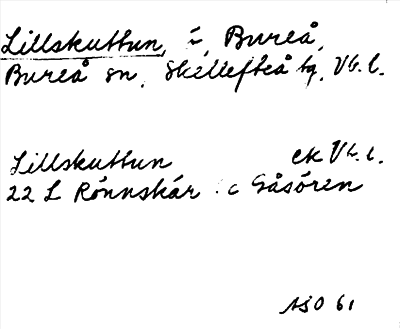 Lillskuttun, , Bureå,
Bureå sn, Skellefteå tg, Vb. l.
Lillskuttun ek Vb. l.
22 L Rönnskär : c Gåsören
ASO 61